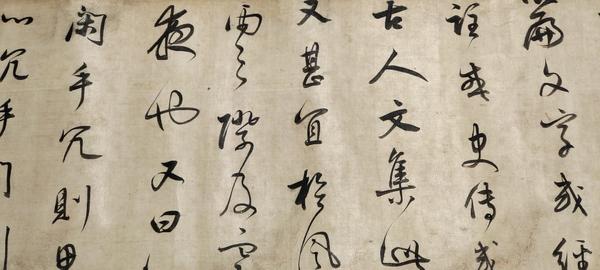 篇文字或經
註或史傳或
古人文集此
又甚宜於風
雨之際及寒
夜也又曰
閑手冗則思
心冗手